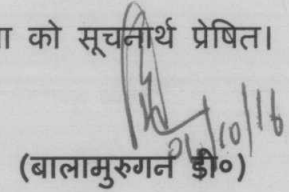 ा को सूचनार्थ प्रेषित।
04/10/16
(बालामुरुगन डी०)